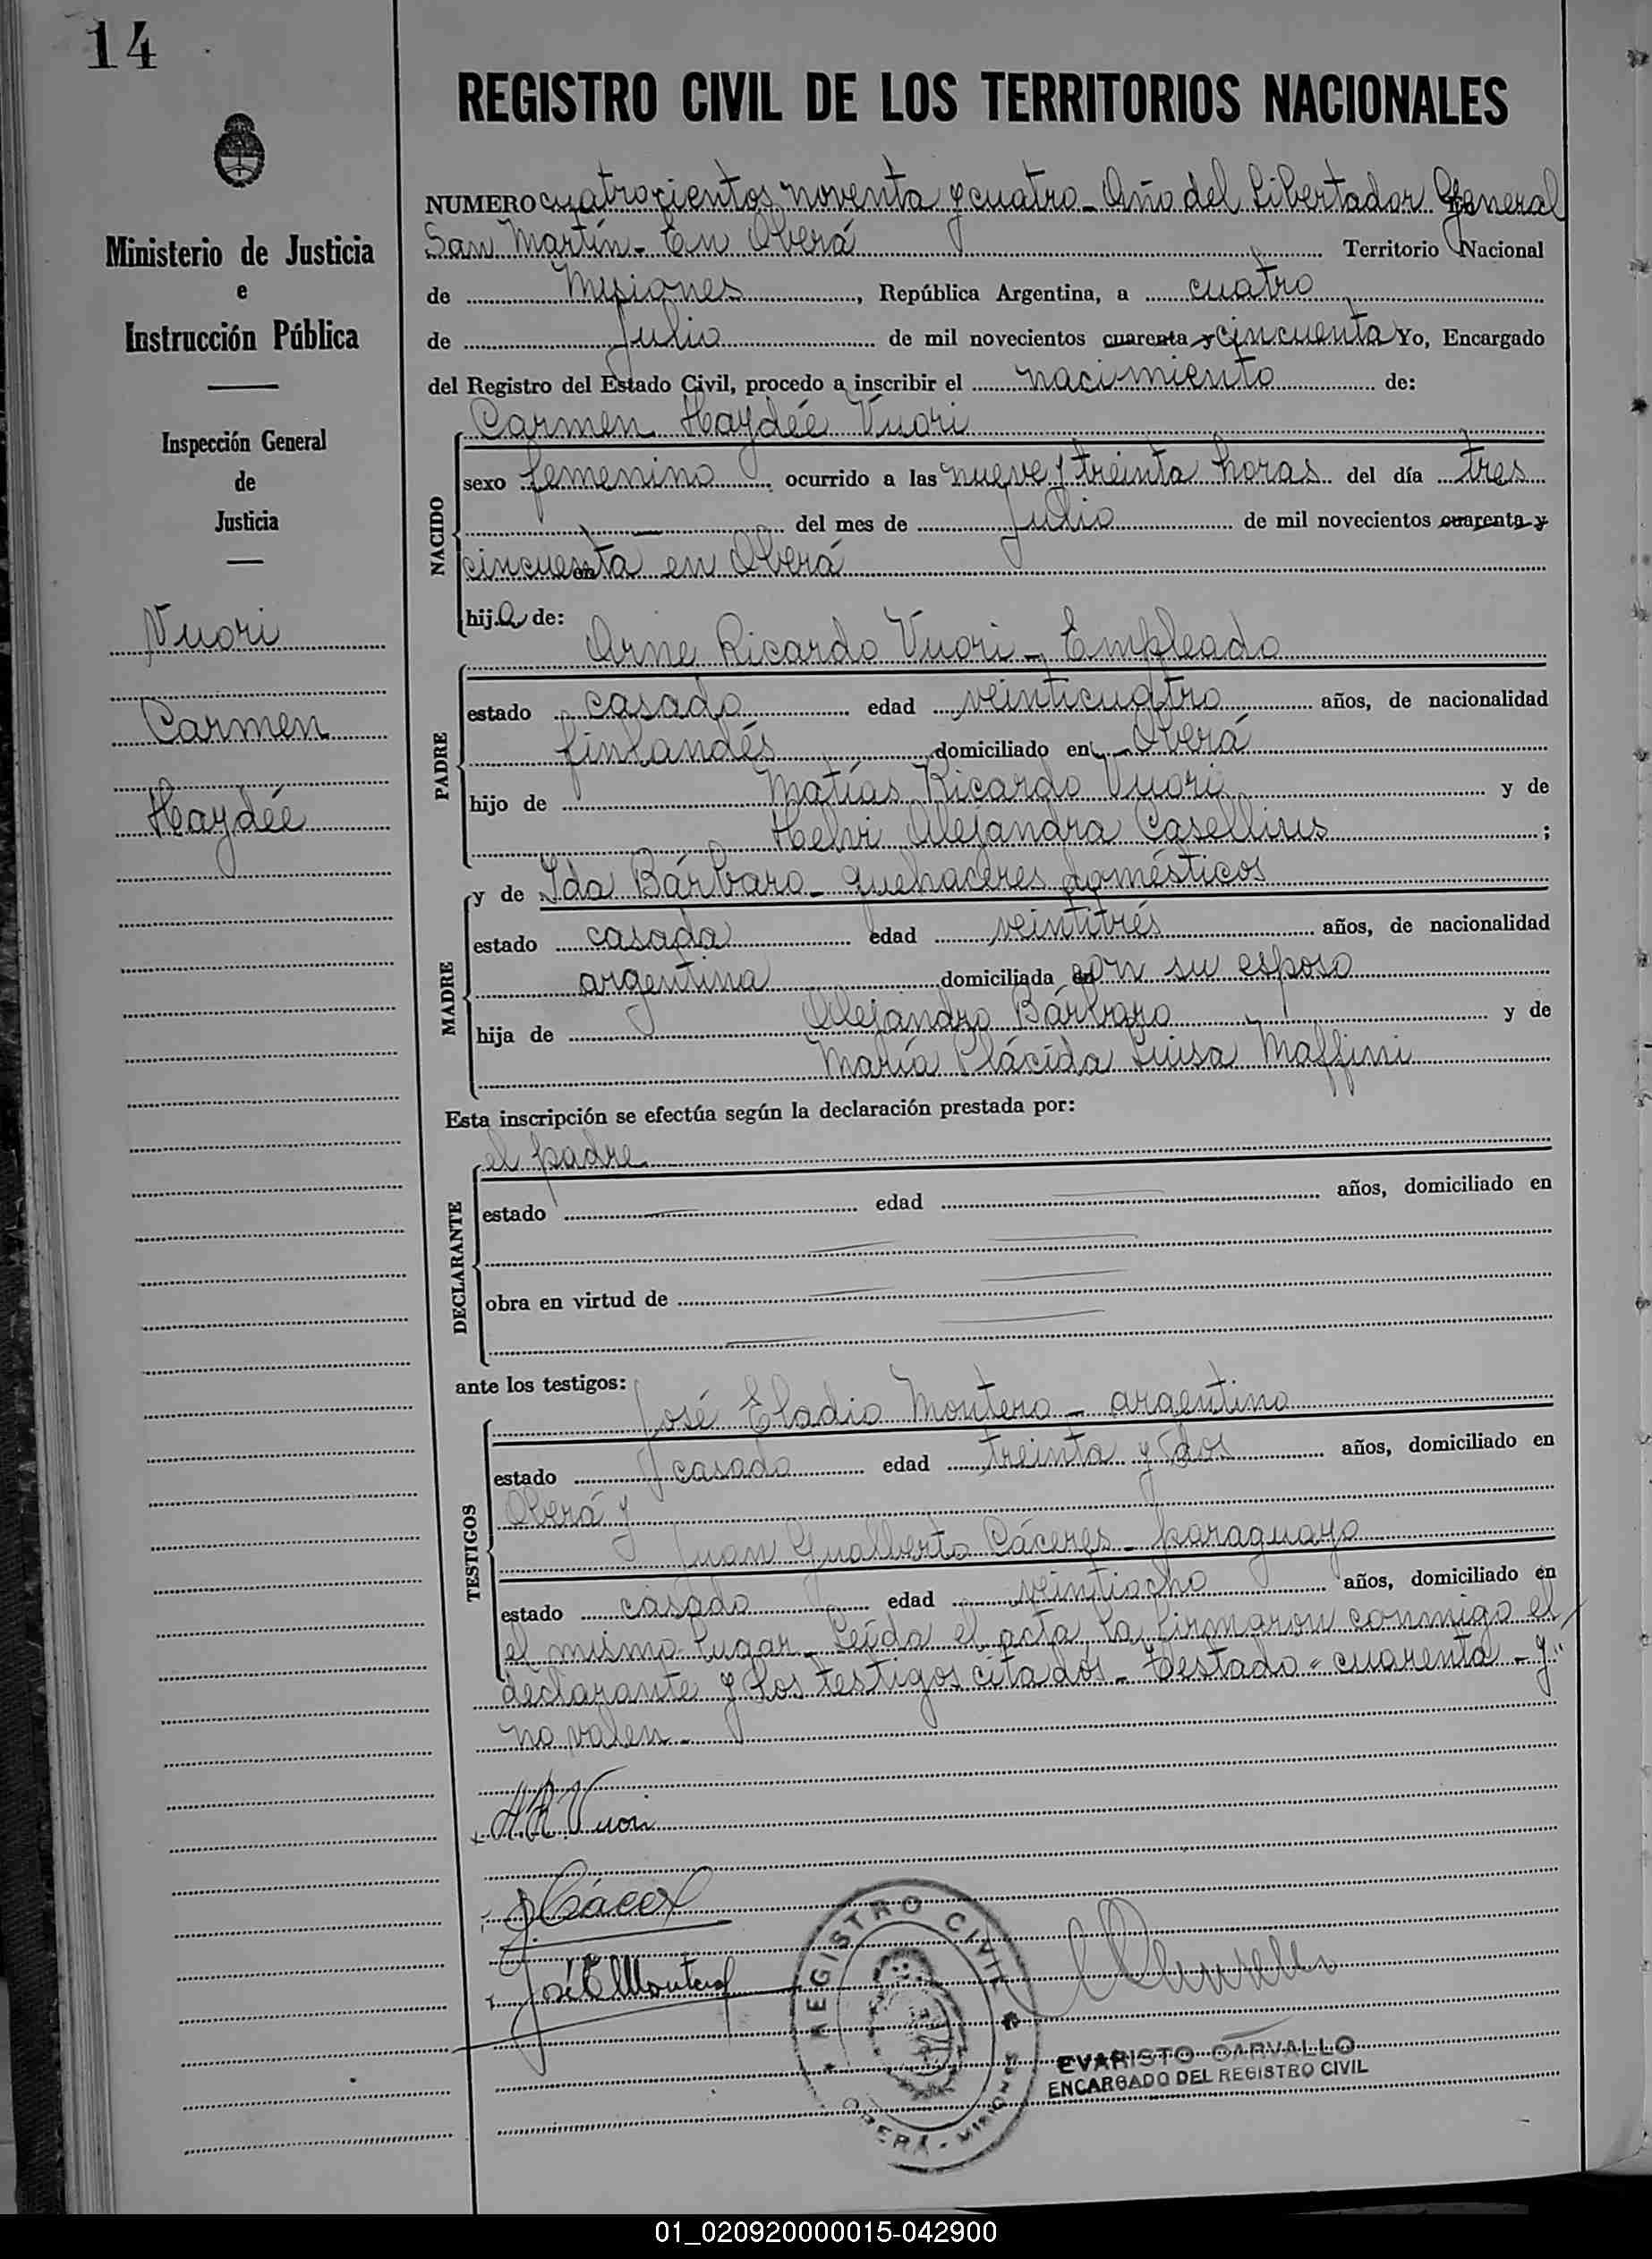 14
REGISTRO CIVIL DE LOS TERRITORIOS NACIONALES
Ministerio de Justicia
e
Instrucción Pública
Inspección General
de
Justicia
Vuori
Carmen
Haydée
NUMERO cuatrocientos noventa y cuatro - Año del Libertador General
San Martín - En Oberá Territorio Nacional
de Misiones, República Argentina, a cuatro
de Julio de mil novecientos cuarenta y cincuenta Yo, Encargado
del Registro del Estado Civil, procedo a inscribir el nacimiento de:
Carmen Haydée Vuori
NACIDO
sexo femenino ocurrido a las nueve y treinta horas del día tres
del mes de Julio de mil novecientos cuarenta y
cincuenta en Oberá
hija de:
Arne Ricardo Vuori - Empleado
PADRE
estado casado edad veinticuatro años, de nacionalidad
finlandés domiciliado en Oberá
hijo de Matías Ricardo Vuori y de
Helvi Alejandra Casellius;
y de Ida Bárbaro - quehaceres domésticos
MADRE
estado casada edad veintitrés años, de nacionalidad
argentina domiciliada con su esposo
hija de Alejandro Bárbaro y de
María Plácida Luisa Maffini
Esta inscripción se efectúa según la declaración prestada por:
el padre
DECLARANTE
estado edad años, domiciliado en
obra en virtud de
ante los testigos:
José Eladio Montero - argentino
TESTIGOS
estado casado edad treinta y dos años, domiciliado en
Oberá y
Juan Gualberto Cáceres - paraguayo
estado casado edad veintiocho años, domiciliado en
el mismo lugar. Leída el acta la firmaron conmigo el
declarante y los testigos citados - Testado "cuarenta - y"
no valen -
A R Vuori
J Cáceres
José E Montero
REGISTRO CIVIL
OBERÁ - MISIONES
EVARISTO CARVALLO
ENCARGADO DEL REGISTRO CIVIL
01_020920000015-042900